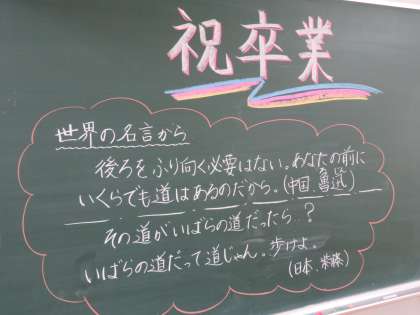 祝卒業
世界の名言から
後ろをふり向く必要はない。あなたの前に
いくらでも道はあるのだから。(中国、魯迅)
その道がいばらの道だったら…?
いばらの道だって道じゃん。歩けよ。
(日本、紫藤)